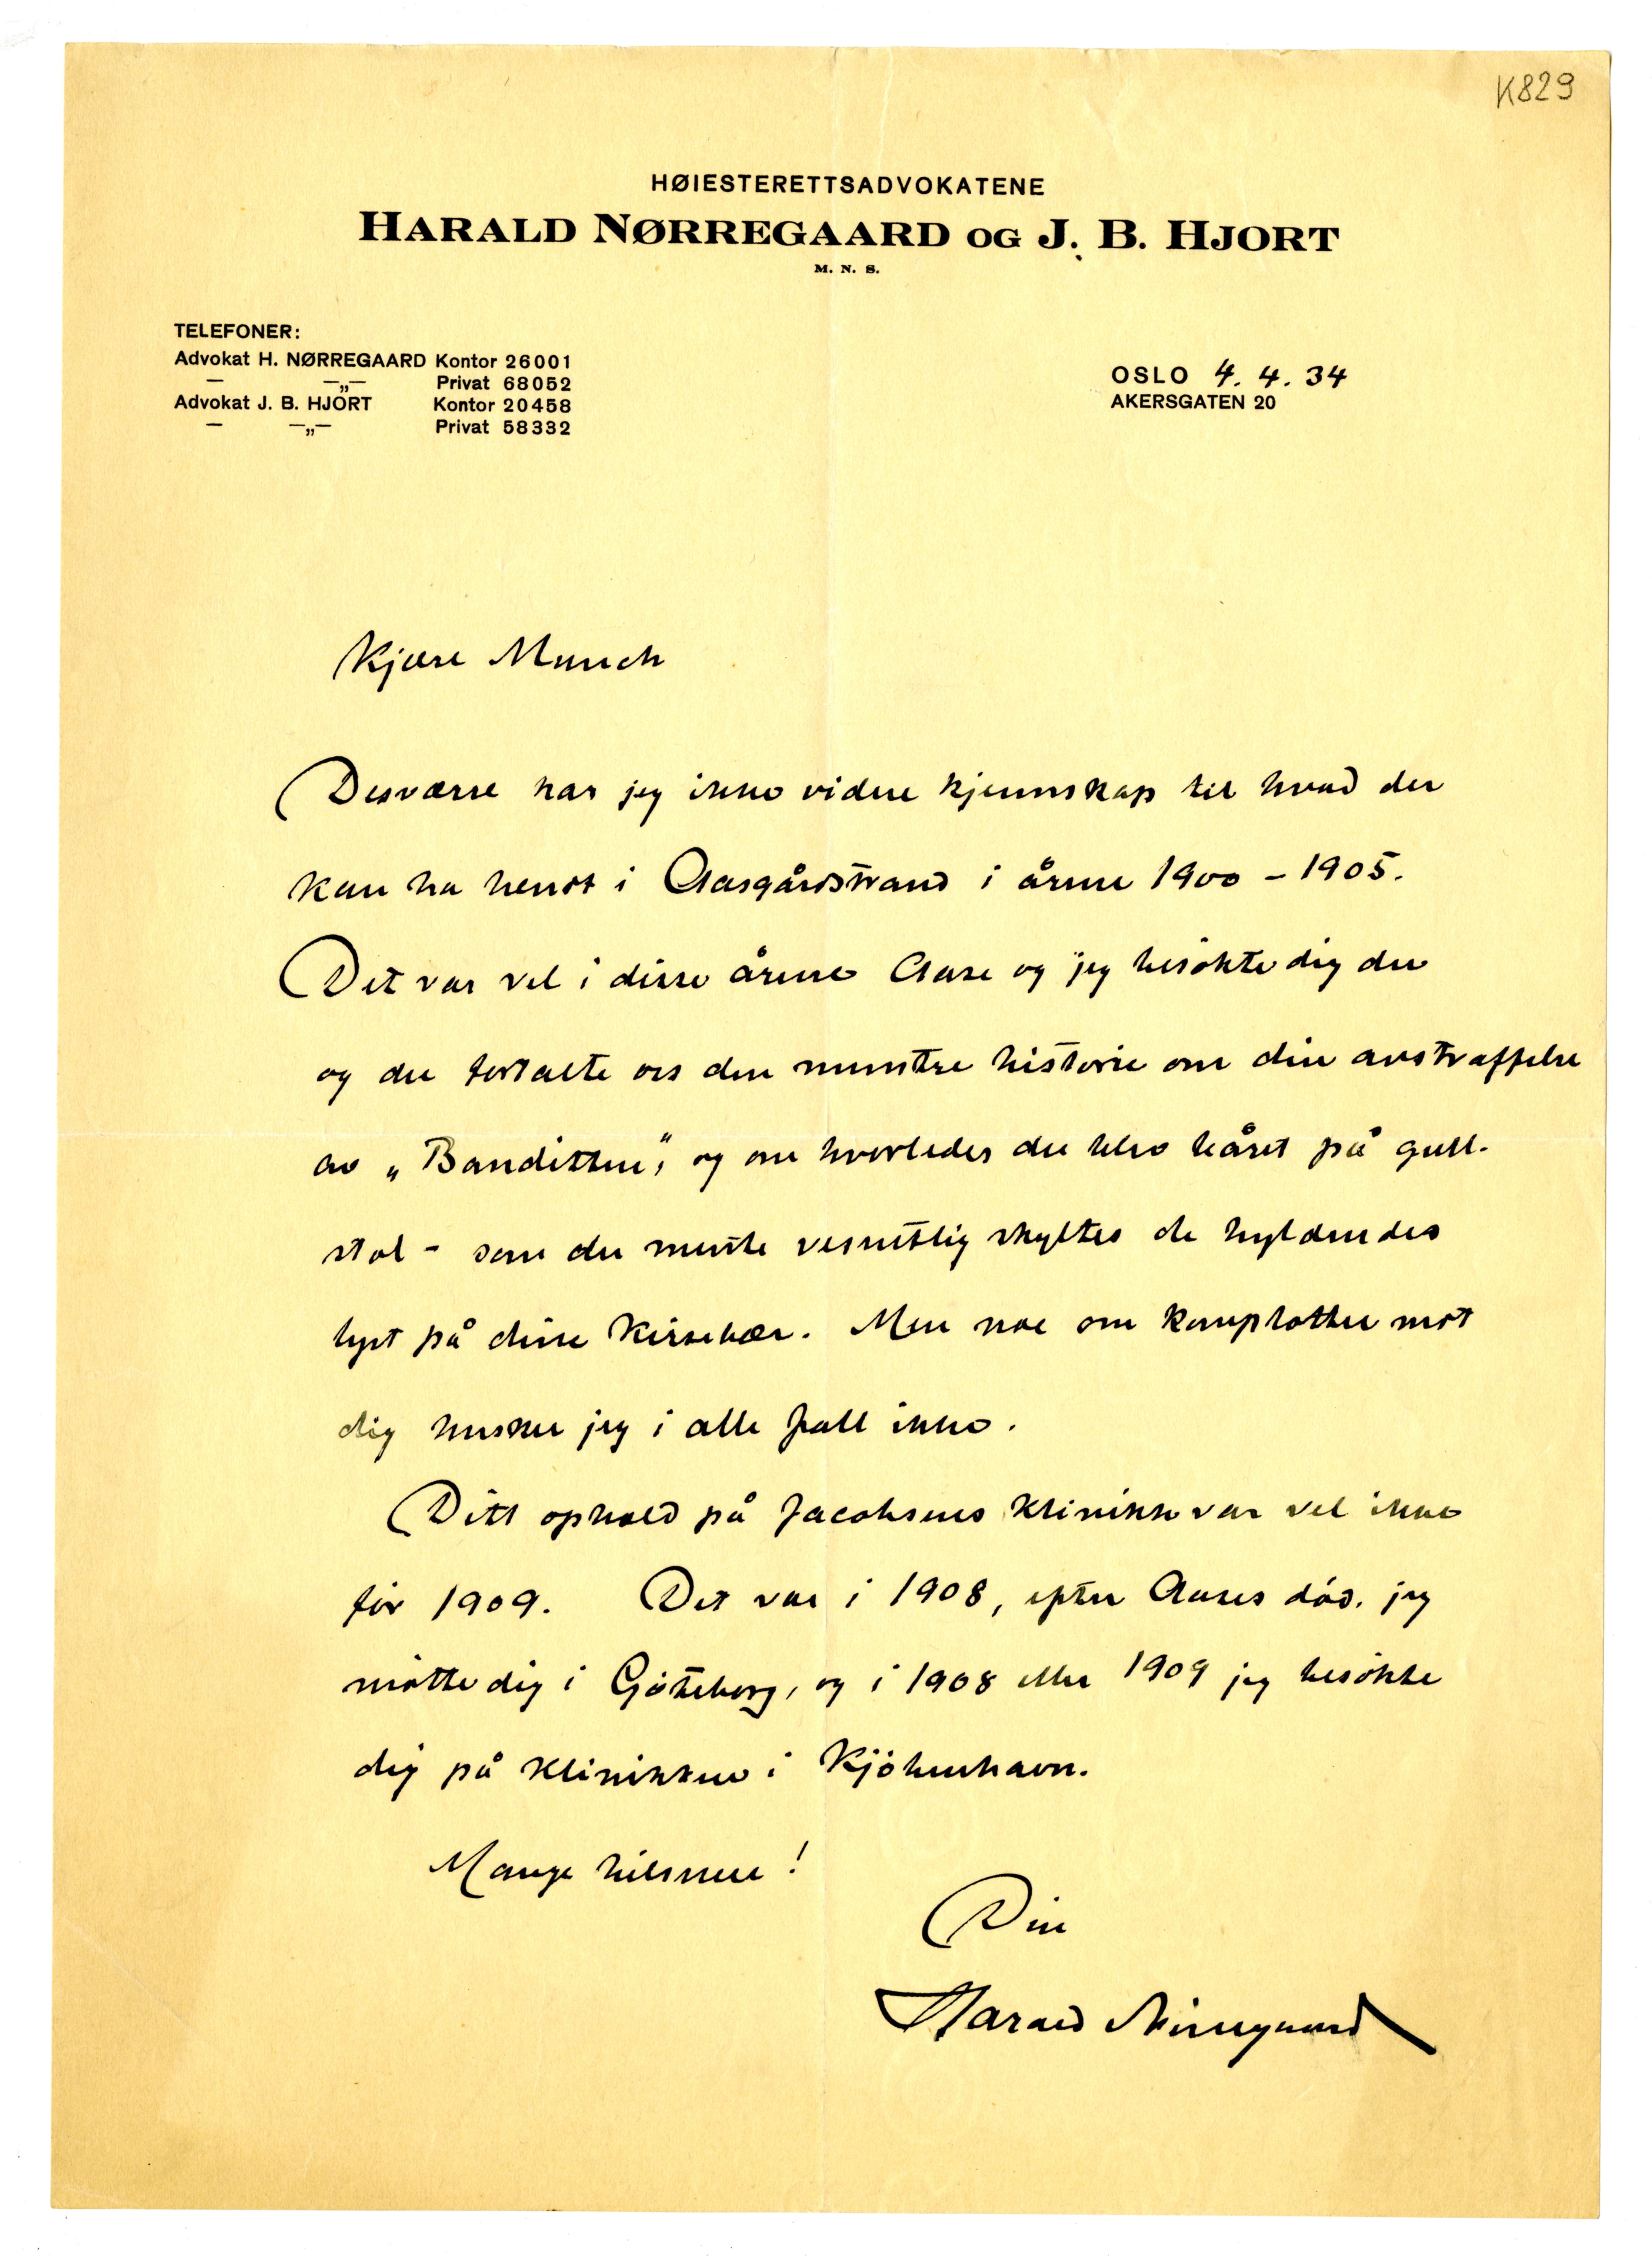 K829
HØIESTERETTSADVOKATENE
HARALD NØRREGAARD OG J. B. HJORT
M. N. S.
TELEFONER:
Advokat H. NØRREGAARD Kontor 26001
— —„— Privat 68052
Advokat J. B. HJORT Kontor 20458
— —„— Privat 58332
OSLO 4. 4. 34
AKERSGATEN 20
Kjære Munch
Desværre har jeg ikke videre kjennskap til hvad der
kan ha hendt i Aasgårdstrand i årene 1900 – 1905.
Det var vel i disse årene Aase og jeg besökte dig der
og du fortalte os den muntre historie om din avstraffelse
av „Banditten", og om hvorledes du blev båret på gull-
stol – som du mente vesentlig skyltes de hyldendes
lyst på dine kirsebær. Men noe om komplotter mot
dig husker jeg i alle fall ikke.
Ditt ophold på Jacobsens klinikk var vel ikke
för 1909. Det var i 1908, efter Aases död. jeg
mötte dig i Gjöteborg, og i 1908 eller 1909 jeg besökte
dig på klinikken i Kjöbenhavn.
Mange hilsener!
Din
Harald Nörregaard